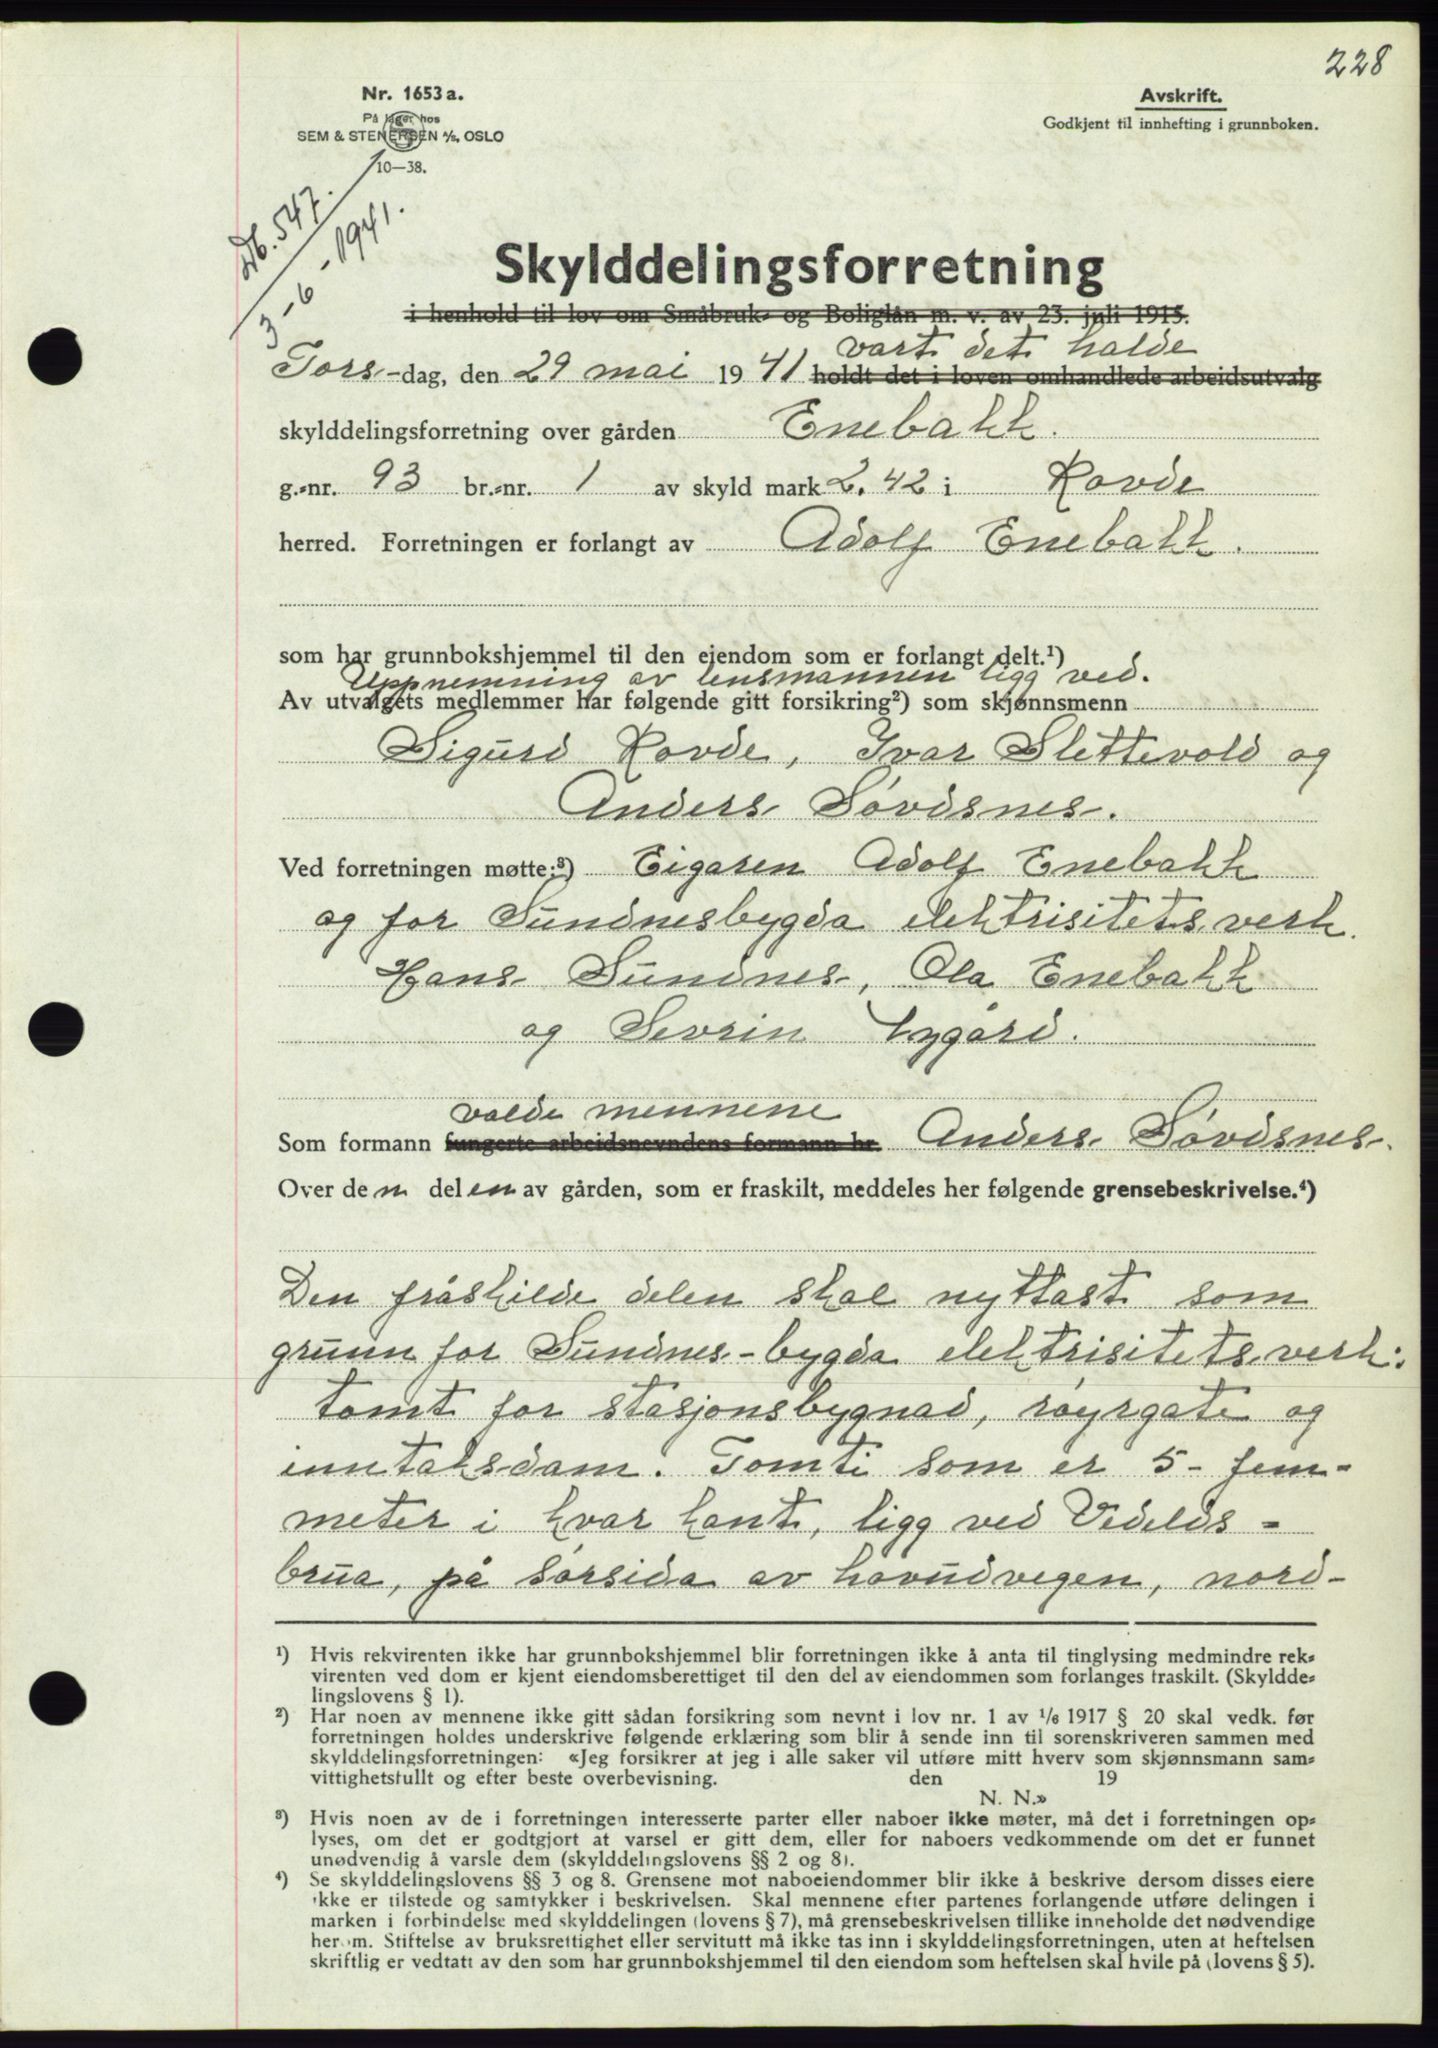 228
Nr. 1653a.
På lager hos
SEM & STENERSEN A/S, OSLO
10—38.
Avskrift.
Godkjent til innhefting i grunnboken.
Db. 547.
3-6-1941.
Skylddelingsforretning
i henhold til lov om Småbruk- og Boliglån m. v. av 23. juli 1915.
vart det halde
Tors-dag, den 29 mai 1941 holdt det i loven omhandlede arbeidsutvalg
skylddelingsforretning over gården Enebakk.
g.-nr. 93 br.-nr. 1 av skyld mark 2.42 i Rovde
herred. Forretningen er forlangt av Adolf Enebakk.
som har grunnbokshjemmel til den eiendom som er forlangt delt.¹)
Uppnemning av lensmannen ligg ved.
Av utvalgets medlemmer har følgende gitt forsikring²) som skjønnsmenn
Sigurd Rovde, Ivar Slettevold og
Anders Søvdsnes.
Ved forretningen møtte:³) Eigaren Adolf Enebakk
og for Sundnesbygda elektrisitetsverk
Hans Sundnes, Ola Enebakk
og Sevrin Nygård.
valde mennene
Som formann fungerte arbeidsnevndens formann hr. Anders Søvdsnes.
Over den delen av gården, som er fraskilt, meddeles her følgende grensebeskrivelse.⁴)
Den fråskilde delen skal nyttast som
grunn for Sundnes-bygda elektrisitetsverk:
tomt for stasjonsbygnad, røyrgate og
inntaksdam. Tomti som er 5- fem-
meter i kvar kant, ligg ved Vedelds-
brua, på sørsida av hovudvegen, nord-
¹) Hvis rekvirenten ikke har grunnbokshjemmel blir forretningen ikke å anta til tinglysing medmindre rek-
virenten ved dom er kjent eiendomsberettiget til den del av eiendommen som forlanges fraskilt. (Skyldde-
lingslovens § 1).
²) Har noen av mennene ikke gitt sådan forsikring som nevnt i lov nr. 1 av 1/6 1917 § 20 skal vedk. før
forretningen holdes underskrive følgende erklæring som blir å sende inn til sorenskriveren sammen med
skylddelingsforretningen: «Jeg forsikrer at jeg i alle saker vil utføre mitt hverv som skjønnsmann sam-
vittighetsfullt og efter beste overbevisning. den 19
N. N.»
³) Hvis noen av de i forretningen interesserte parter eller naboer ikke møter, må det i forretningen op-
lyses, om det er godtgjort at varsel er gitt dem, eller for naboers vedkommende om det er funnet
unødvendig å varsle dem (skylddelingslovens §§ 2 og 8).
⁴) Se skylddelingslovens §§ 3 og 8. Grensene mot naboeiendommer blir ikke å beskrive dersom disses eiere
ikke er tilstede og samtykker i beskrivelsen. Skal mennene efter partenes forlangende utføre delingen i
marken i forbindelse med skylddelingen (lovens § 7), må grensebeskrivelsen tillike inneholde det nødvendige
herom. Stiftelse av bruksrettighet eller servitutt må ikke tas inn i skylddelingsforretningen, uten at heftelsen
skriftlig er vedtatt av den som har grunnbokshjemmel til den eiendom som heftelsen skal hvile på (lovens § 5).